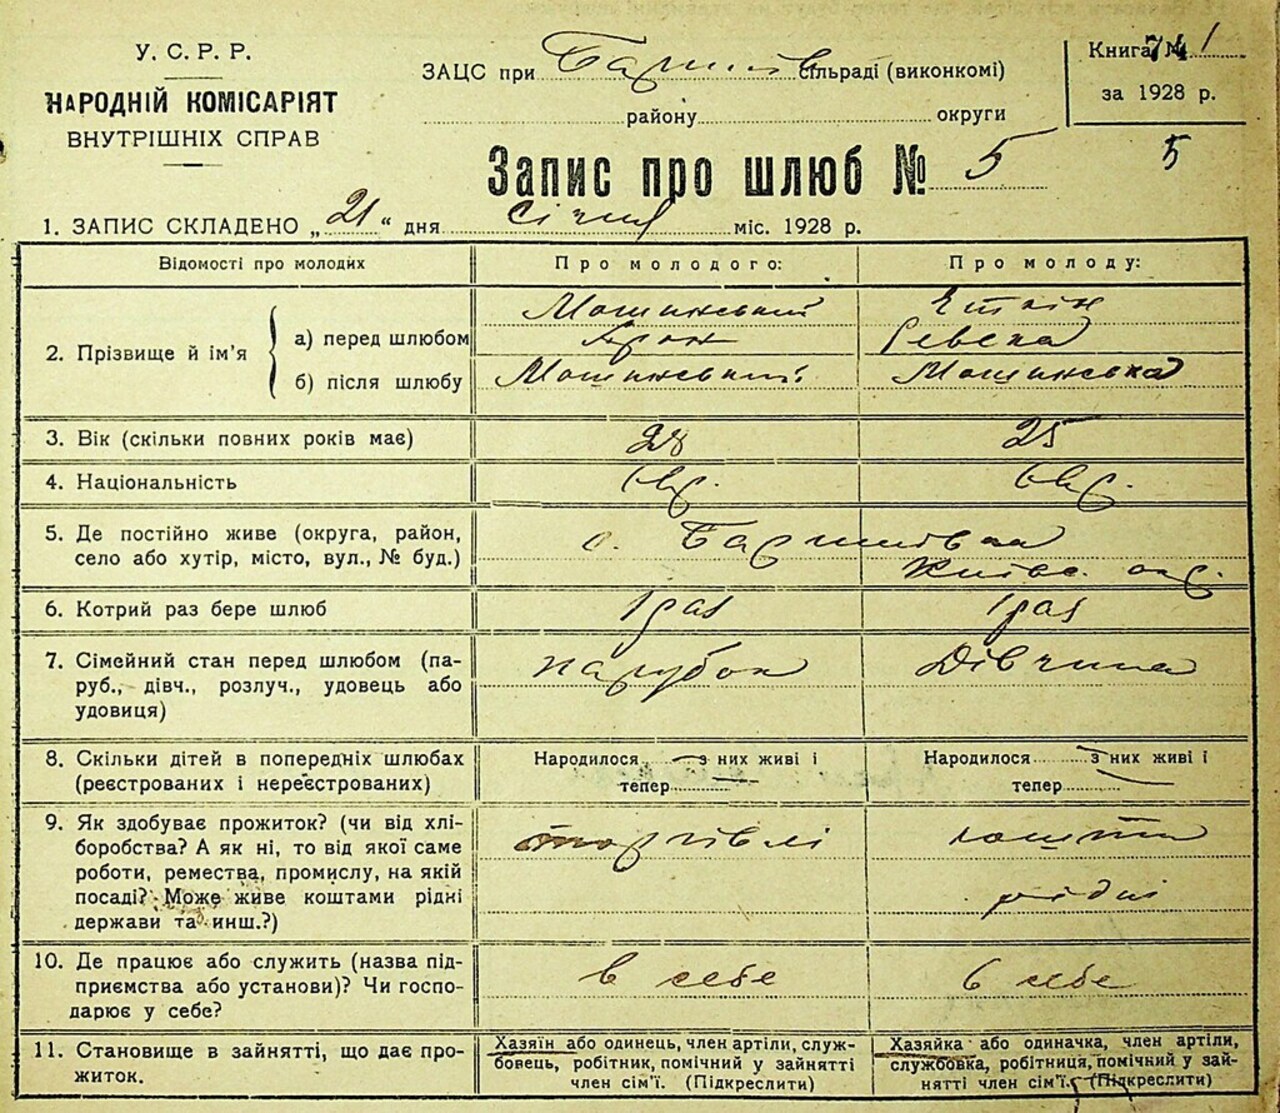 У. С. Р. Р.
НАРОДНІЙ КОМІСАРІЯТ
ВНУТРІШНІХ СПРАВ
ЗАЦС при сільраді (виконкомі)
району округи
Книга № 1
за 1928 р.
5
Запис про шлюб № 5
1. ЗАПИС СКЛАДЕНО „21“ дня січня міс. 1928 р.
Відомості про молодих
Про молодого:
Про молоду:
2. Прізвище й ім'я
а) перед шлюбом
б) після шлюбу
Мошинський
Арон
Мошинський
Ревека
Мошинська
3. Вік (скільки повних років має)
28
25
4. Національність
євр.
євр.
5. Де постійно живе (округа, район,
село або хутір, місто, вул., № буд.)
с.
Київс. окр.
6. Котрий раз бере шлюб
1 раз
1 раз
7. Сімейний стан перед шлюбом (па-
руб., дівч., розлуч., удовець або
удовиця)
парубок
Дівчина
8. Скільки дітей в попередніх шлюбах
(реєстрованих і нереєстрованих)
Народилося — з них живі і
тепер —
Народилося — з них живі і
тепер —
9. Як здобуває прожиток? (чи від хлі-
боробства? А як ні, то від якої саме
роботи, ремества, промислу, на якій
посаді? Може живе коштами рідні
держави та инш.?)
торгівлі
кошти
рідні
10. Де працює або служить (назва під-
приємства або установи)? Чи госпо-
дарює у себе?
в себе
в себе
11. Становище в зайнятті, що дає про-
житок.
Хазяїн або одинець, член артіли, служ-
бовець, робітник, помічний у зайнятті
член сім'ї. (Підкреслити)
Хазяйка або одиначка, член артіли,
службовка, робітниця, помічний у зай-
нятті член сім'ї. (Підкреслити)